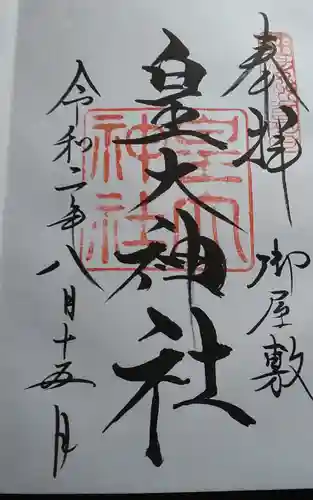 奉拝
御屋敷
皇大神社
皇大神社
令和二年八月十五日